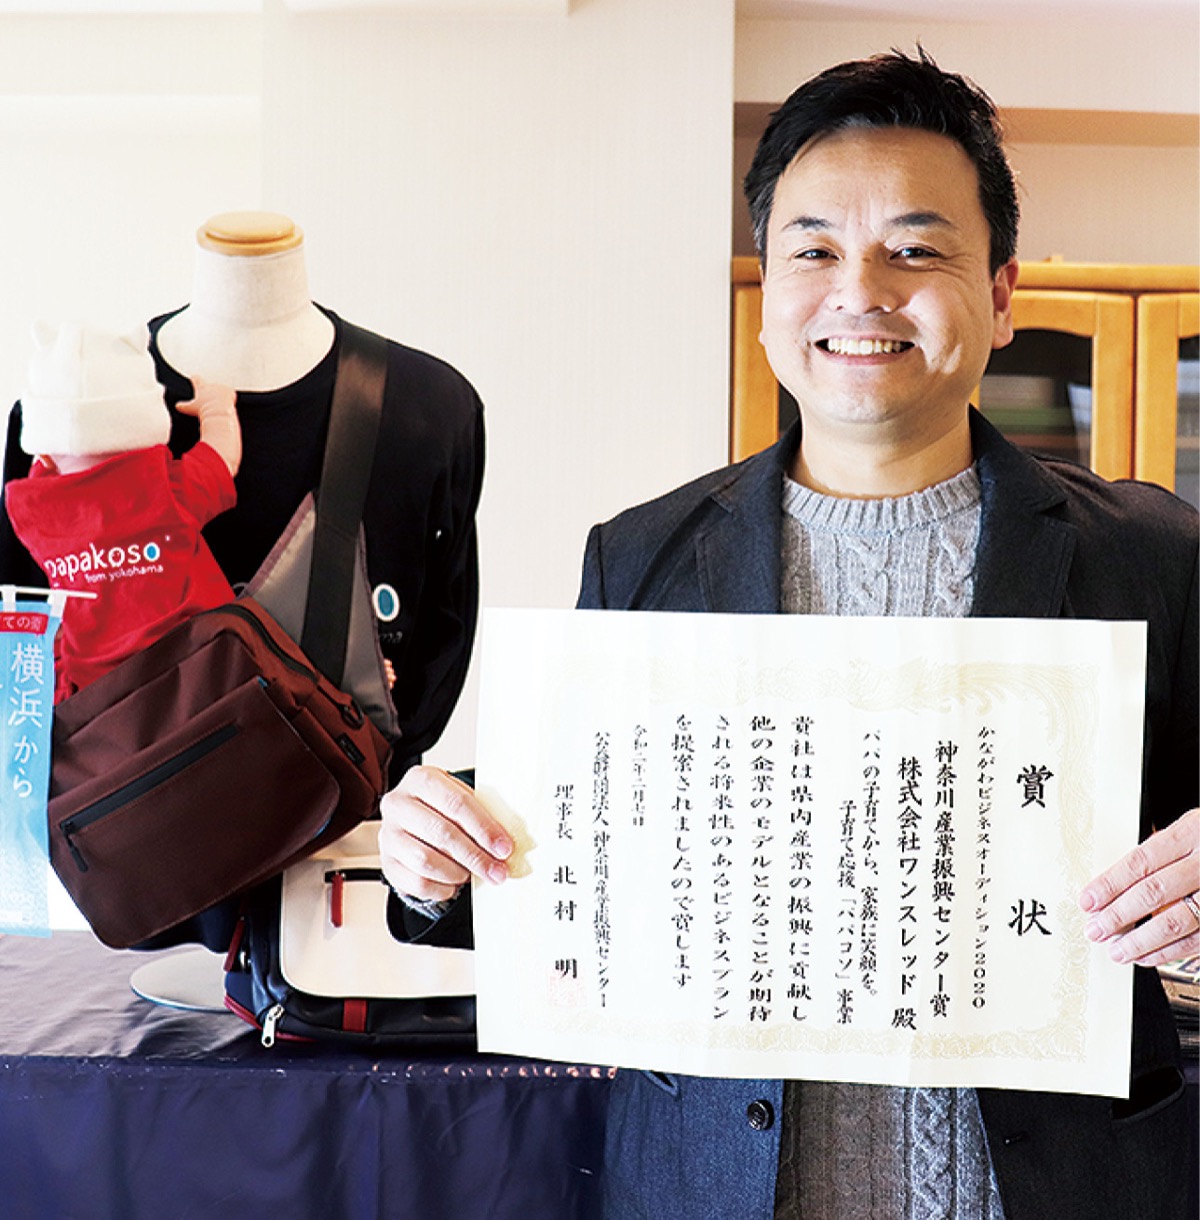 賞状
かながわビジネスオーディション2020
神奈川産業振興センター賞
株式会社ワンスレッド 殿
パパの子育てから、家族に笑顔を。
子育て応援「パパコソ」事業
貴社は県内産業の振興に貢献し
他の企業のモデルとなることが期待
される将来性のあるビジネスプラン
を提案されましたので賞します
令和二年二月七日
公益財団法人 神奈川産業振興センター
理事長 北村 明
papakoso
from yokohama
横浜から